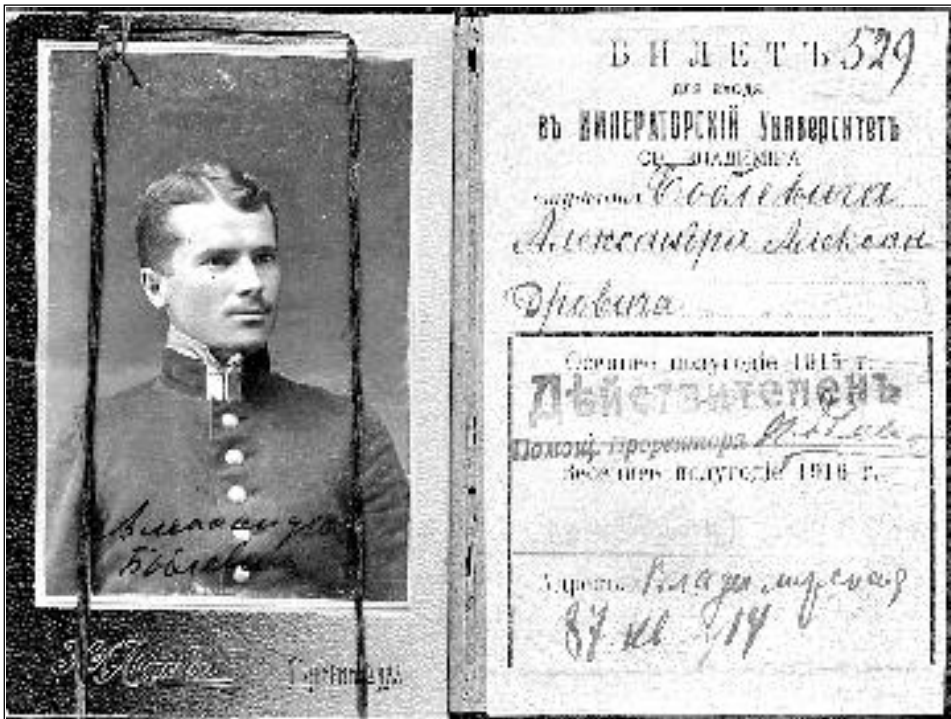 Александръ
БИЛЕТЪ 529
для входа
въ ИМПЕРАТОРСКІЙ Университетъ
СВ. ВЛАДИМІРА
студента
Александра Алексан
дровича
Осеннее полугодіе 1915 г.
Дѣйствителенъ
Помощ. Проректора
Весеннее полугодіе 1916 г.
Адресъ Владимирская
87 кв 14